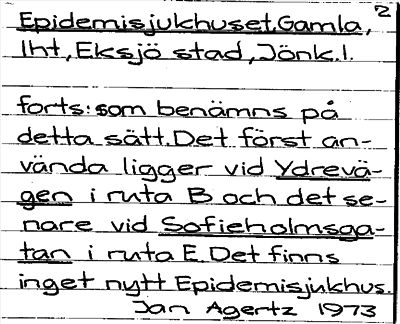 2
Epidemisjukhuset, Gamla,
lht, Eksjö stad, Jönk. l.
forts: som benämns på
detta sätt. Det först an-
vända ligger vid Ydrevä-
gen i ruta B och det se-
nare vid Sofieholmsga-
tan i ruta E. Det finns
inget nytt Epidemisjukhus.
Jan Agertz 1973